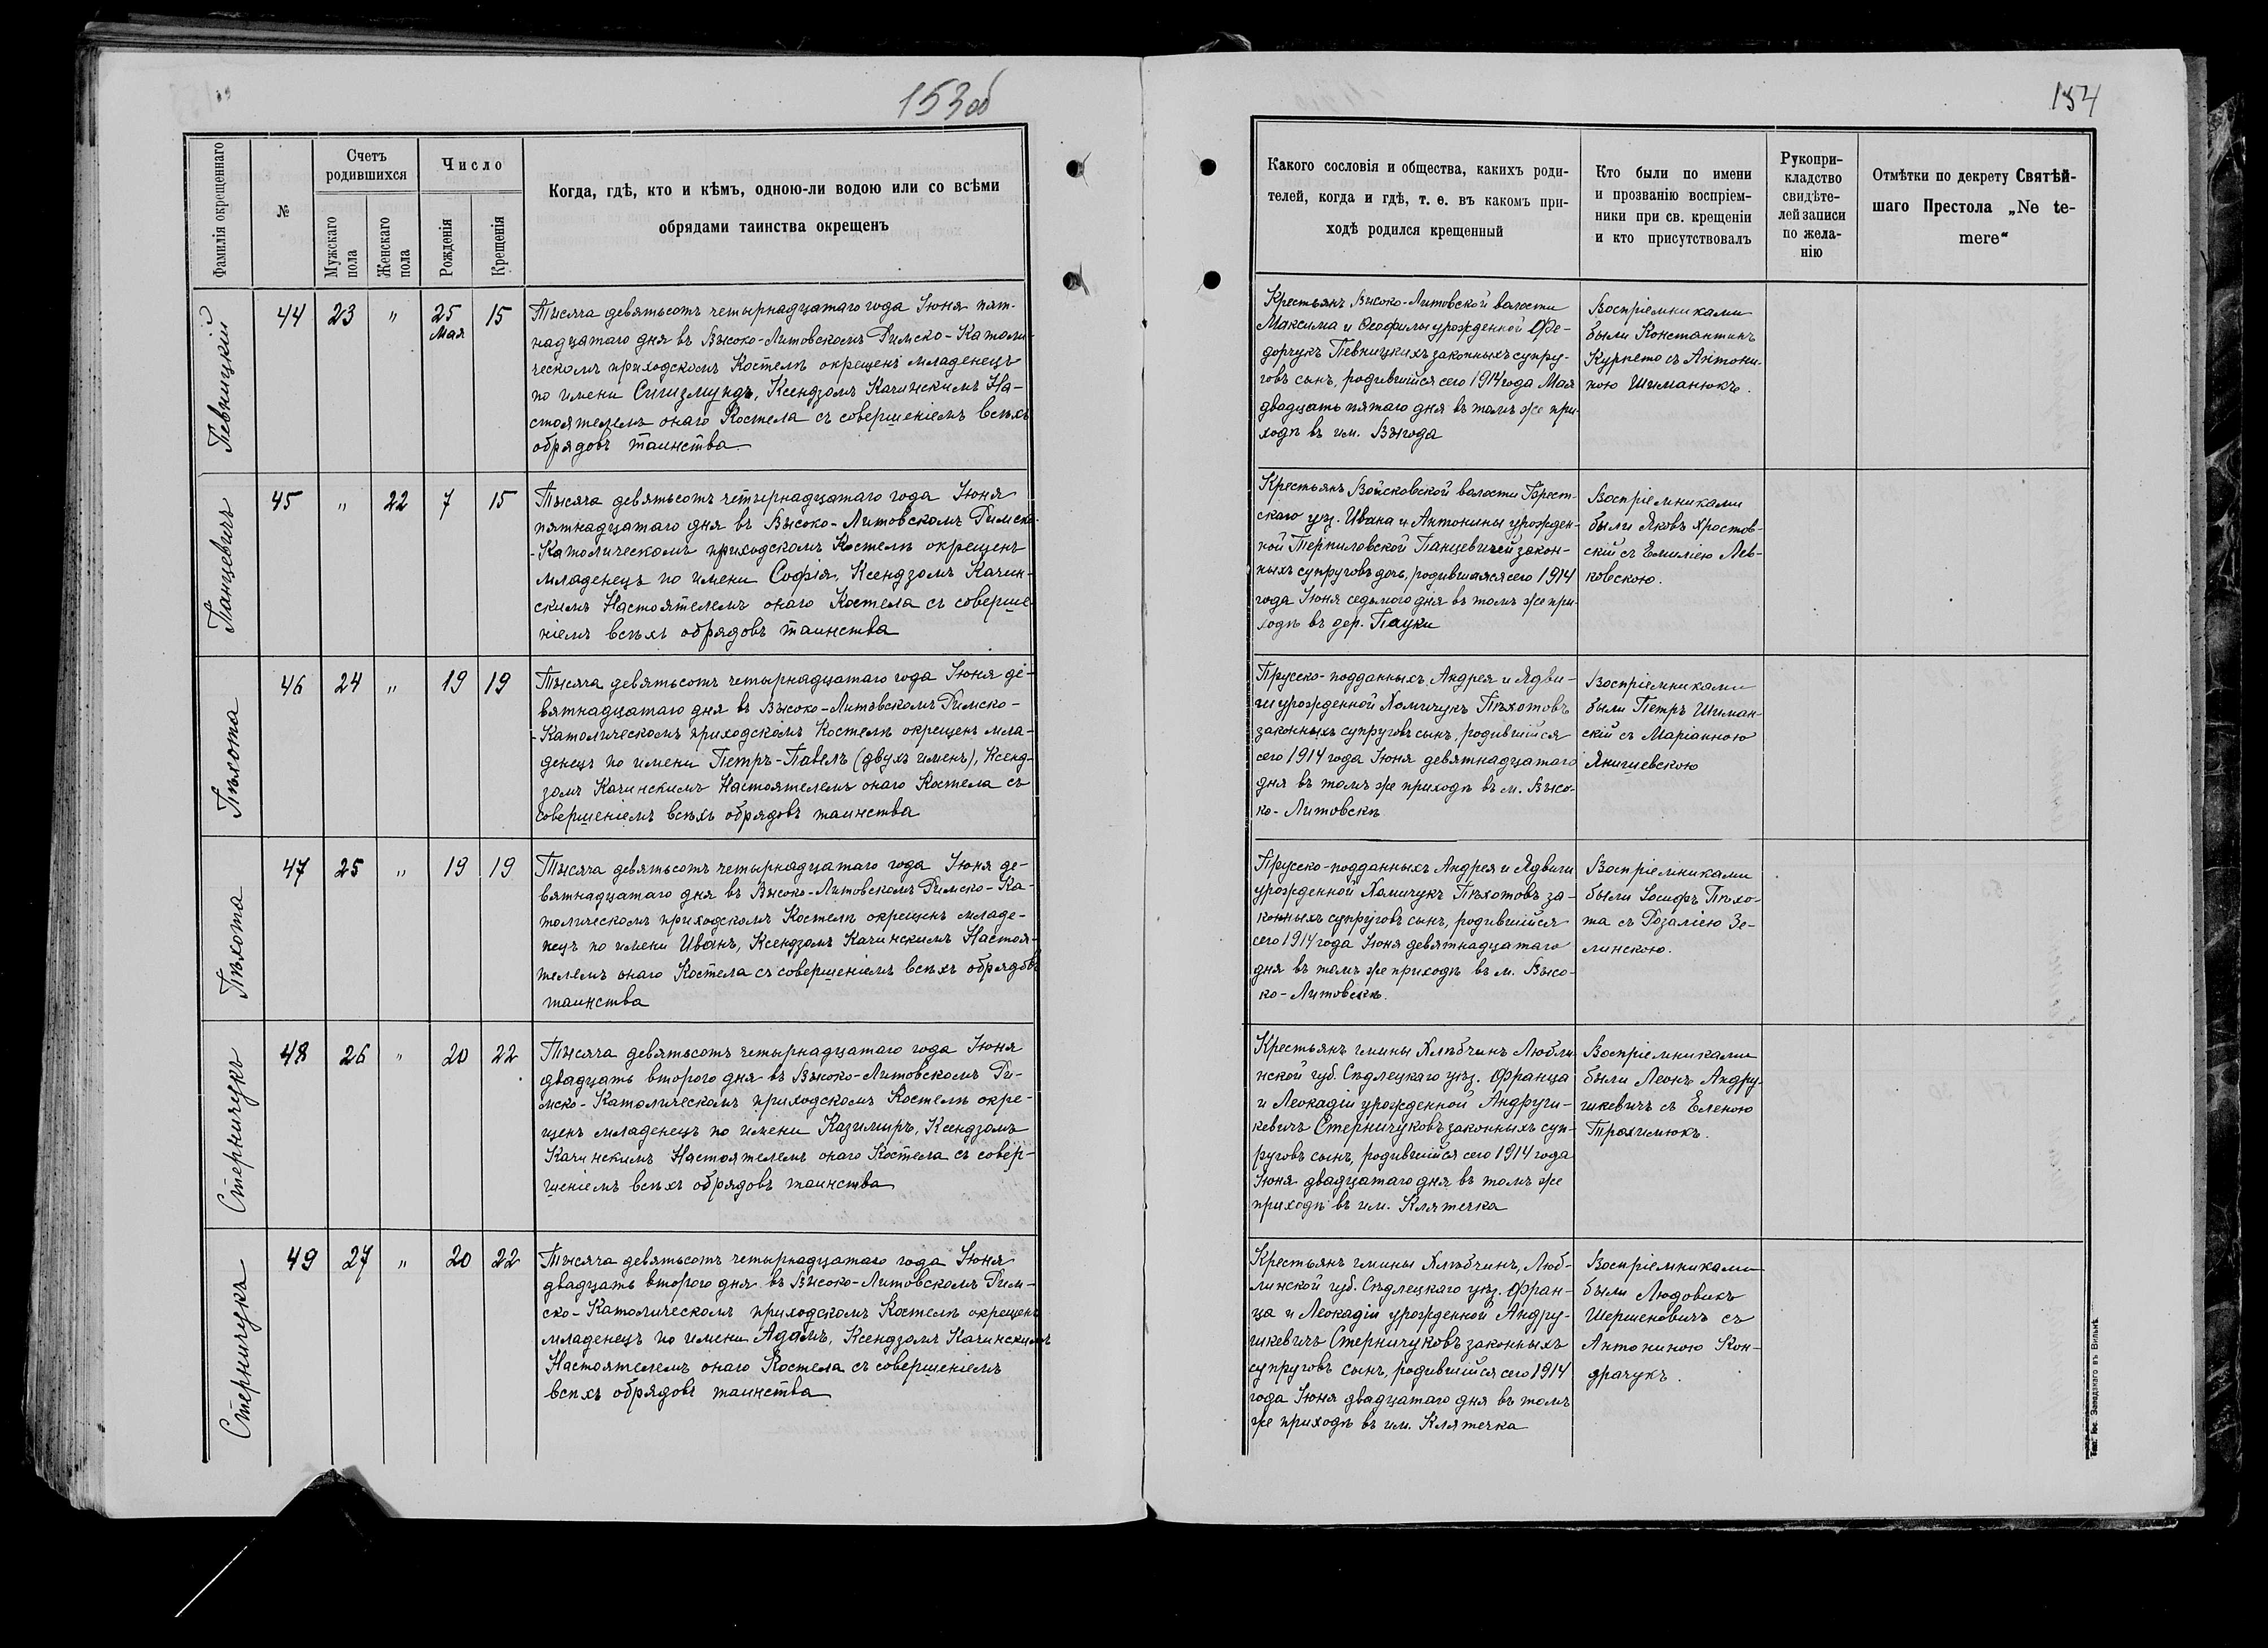 153 об
Фамилія окрещеннаго
№
Счетъ
родившихся
Мужскаго
пола
Женскаго
пола
Число
Рожденія
Крещенія
Когда, гдѣ, кто и кѣмъ, одною-ли водою или со всѣми
обрядами таинства окрещенъ
Певницкій
44 23 " 25 15
Мая
Тысяча девятьсотъ четырнадцатаго года Іюня пят-
надцатаго дня въ Высоко-Литовскомъ Римско-Католи-
ческомъ приходскомъ Костелѣ окрещенъ младенецъ
по имени Сигизмундъ, Ксендзомъ Качинскимъ На-
стоятелемъ онаго Костела съ совершеніемъ всѣхъ
обрядовъ таинства.
Панцевичъ
45 " 22 7 15
Тысяча девятьсотъ четырнадцатаго года Іюня
пятнадцатаго дня въ Высоко-Литовскомъ Римско-
-Католическомъ приходскомъ Костелѣ окрещенъ
младенецъ по имени Софія, Ксендзомъ Качин-
скимъ Настоятелемъ онаго Костела съ соверше-
ніемъ всѣхъ обрядовъ таинства
Пѣхота
46 24 " 19 19
Тысяча девятьсотъ четырнадцатаго года Іюня де-
вятнадцатаго дня въ Высоко-Литовскомъ Римско-
-Католическомъ приходскомъ Костелѣ окрещенъ мла-
денецъ по имени Петръ-Павелъ (двухъ именъ), Ксенд-
зомъ Качинскимъ Настоятелемъ онаго Костела съ
совершеніемъ всѣхъ обрядовъ таинства
Пѣхота
47 25 " 19 19
Тысяча девятьсотъ четырнадцатаго года Іюня де-
вятнадцатаго дня въ Высоко-Литовскомъ Римско-Ка-
толическомъ приходскомъ Костелѣ окрещенъ младе-
нецъ по имени Иванъ, Ксендзомъ Качинскимъ Настоя-
телемъ онаго Костела съ совершеніемъ всѣхъ обрядовъ
таинства
Стерничукъ
48 26 " 20 22
Тысяча девятьсотъ четырнадцатаго года Іюня
двадцать второго дня въ Высоко-Литовскомъ Ри-
мско-Католическомъ приходскомъ Костелѣ окре-
щенъ младенецъ по имени Казимиръ, Ксендзомъ
Качинскимъ Настоятелемъ онаго Костела съ совер-
шеніемъ всѣхъ обрядовъ таинства
Стерничукъ
49 27 " 20 22
Тысяча девятьсотъ четырнадцатаго года Іюня
двадцать второго дня въ Высоко-Литовскомъ Рим-
ско-Католическомъ приходскомъ Костелѣ окрещенъ
младенецъ по имени Адамъ, Ксендзомъ Качинскимъ
Настоятелемъ онаго Костела съ совершеніемъ
всѣхъ обрядовъ таинства
154
Какого сословія и общества, какихъ роди-
телей, когда и гдѣ, т. е. въ какомъ при-
ходѣ родился крещенный
Кто были по имени
и прозванію воспріем-
ники при св. крещеніи
и кто присутствовалъ
Рукопри-
кладство
свидѣте-
лей записи
по жела-
нію
Отмѣтки по декрету Святѣй-
шаго Престола „Ne te-
mere“
Крестьянъ Высоко-Литовской волости
Максима и Ѳеофилы урожденной Фе-
дорчукъ Певницкихъ законныхъ супру-
говъ сынъ, родившійся сего 1914 года Мая
двадцать пятаго дня въ томъ же при-
ходѣ въ им. Выгода
Воспріемниками
были Константинъ
Курпето съ Антони-
ною Шиманюкъ.
Крестьянъ Войсковской волости Брест-
скаго уѣз. Ивана и Антонины урожден-
ной Терпиловской Панцевичей закон-
ныхъ супруговъ дочь, родившаяся сего 1914
года Іюня седьмого дня въ томъ же при-
ходѣ въ дер. Пауки
Воспріемниками
были Яковъ Хростов-
скій съ Емиліею Лев-
ковскою.
Прусско-подданныхъ Андрея и Ядви-
ги урожденной Хомичукъ Пѣхотовъ
законныхъ супруговъ сынъ, родившійся
сего 1914 года Іюня девятнадцатаго
дня въ томъ же приходѣ въ м. Высо-
ко-Литовскѣ
Воспріемниками
были Петръ Шиман-
скій съ Маріанною
Янишевскою
Прусско-подданныхъ Андрея и Ядвиги
урожденной Хомичукъ Пѣхотовъ за-
конныхъ супруговъ сынъ, родившійся
сего 1914 года Іюня девятнадцатаго
дня въ томъ же приходѣ въ м. Высо-
ко-Литовскѣ.
Воспріемниками
были Іосифъ Пѣхо-
та съ Розаліею Зе-
линскою.
Крестьянъ гмины Хлѣбчинъ Любли-
нской губ. Сѣдлецкаго уѣз. Франца
и Леокадіи урожденной Андруш-
кевичъ Стерничуковъ законныхъ суп-
руговъ сынъ, родившійся сего 1914 года
Іюня двадцатаго дня въ томъ же
приходѣ въ им. Клятечка
Воспріемниками
были Леонъ Андру-
шкевичъ съ Еленою
Трохимюкъ.
Крестьянъ гмины Хлѣбчинъ, Люб-
линской губ. Сѣдлецкаго уѣз. Фран-
ца и Леокадіи урожденной Андру-
шкевичъ Стерничуковъ законныхъ
супруговъ сынъ, родившійся сего 1914
года Іюня двадцатаго дня въ томъ
же приходѣ въ им. Клятечка
Воспріемниками
были Людовикъ
Шершеновичъ съ
Антониною Кон-
драчукъ.
Тип. Іос. Завадзкаго въ Вильнѣ.